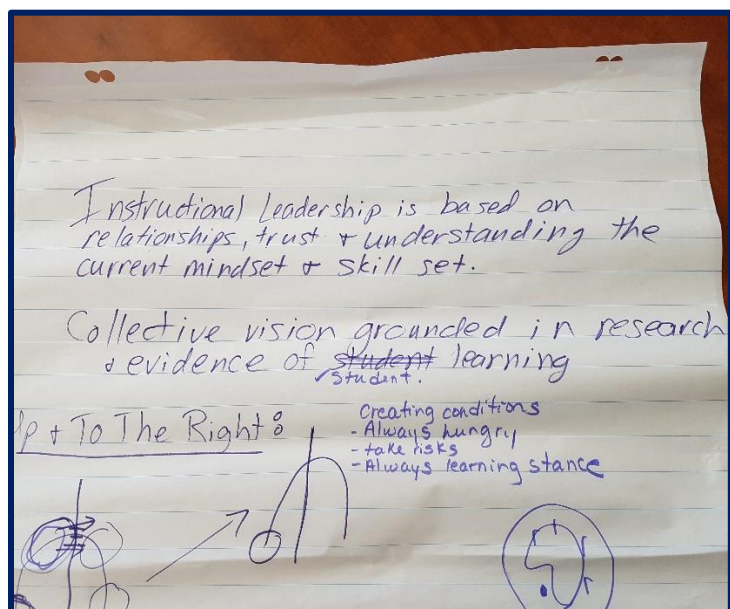 Instructional Leadership is based on
relationships, trust + understanding the
current mindset + skill set.
Collective vision grounded in research
+ evidence of student learning
student.
Up + To The Right:
Creating conditions
- Always hungry
- take risks
- Always learning stance